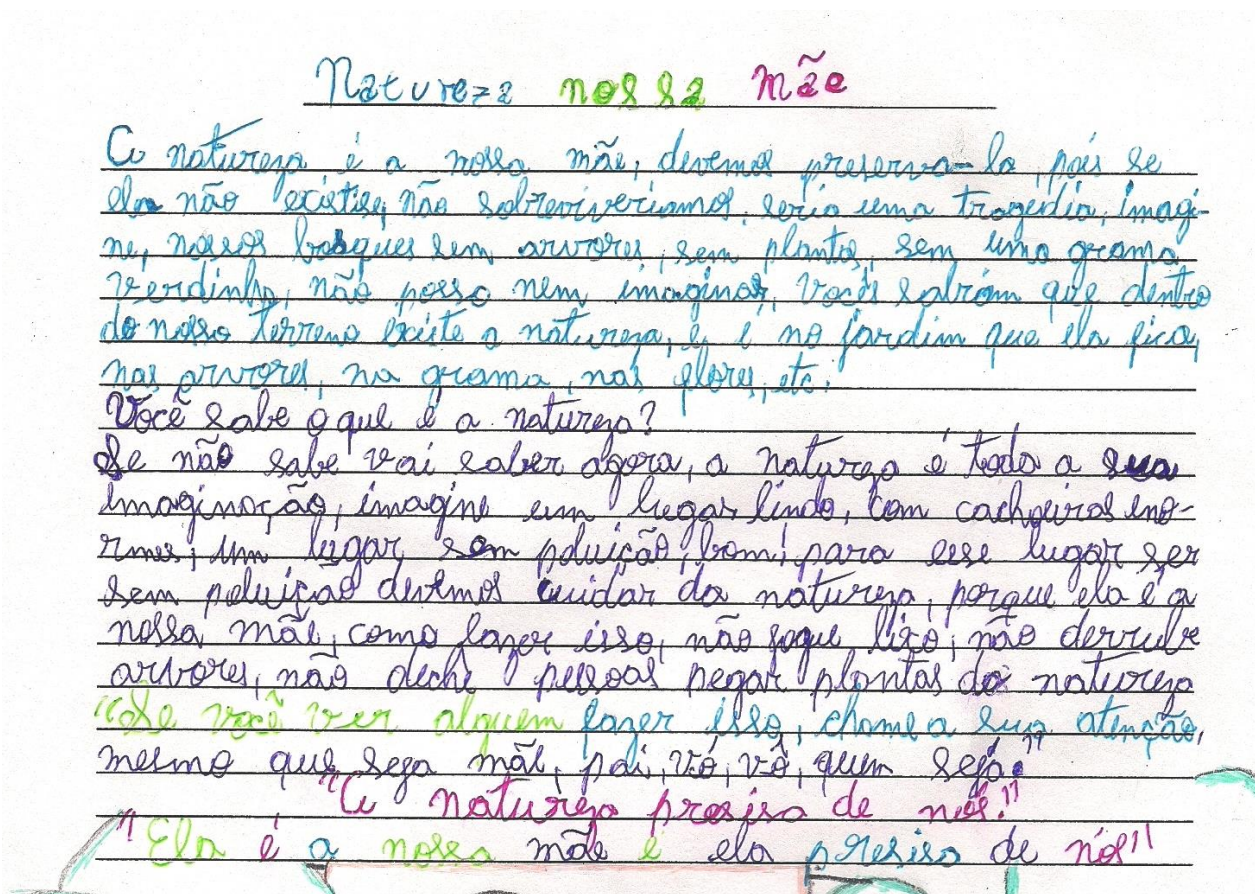 Natureza nossa mãe
A natureza é a nossa mãe, devemos preserva-la, pois se
ela não existise, não sobreviveriamos, seria uma tragédia, imagi-
ne, nossos bosques sem arvores, sem plantas, sem uma grama
verdinha, não posso nem imaginar, vocês sabiam que dentro
do nosso terreno existe a natureza, e é no jardim que ela fica,
nas arvores, na grama, nas flores, etc.
Você sabe o que é a natureza?
Se não sabe vai saber agora, a natureza é toda a sua
imaginação, imagine um lugar lindo, com cachoeiras eno-
rmes, um lugar sem poluição, bom, para esse lugar ser
sem poluição devemos cuidar da natureza, porque ela é a
nossa mãe, como fazer isso, não jogue lixo, não derrube
arvores, não deche pessoas pegar plantas da natureza
"Se você ver alguem fazer isso, chame a sua atenção,
mesmo que seja mãe, pai, vó, vô, quem seja."
"A natureza presisa de nós."
"Ela é a nossa mãe e ela presisa de nós"